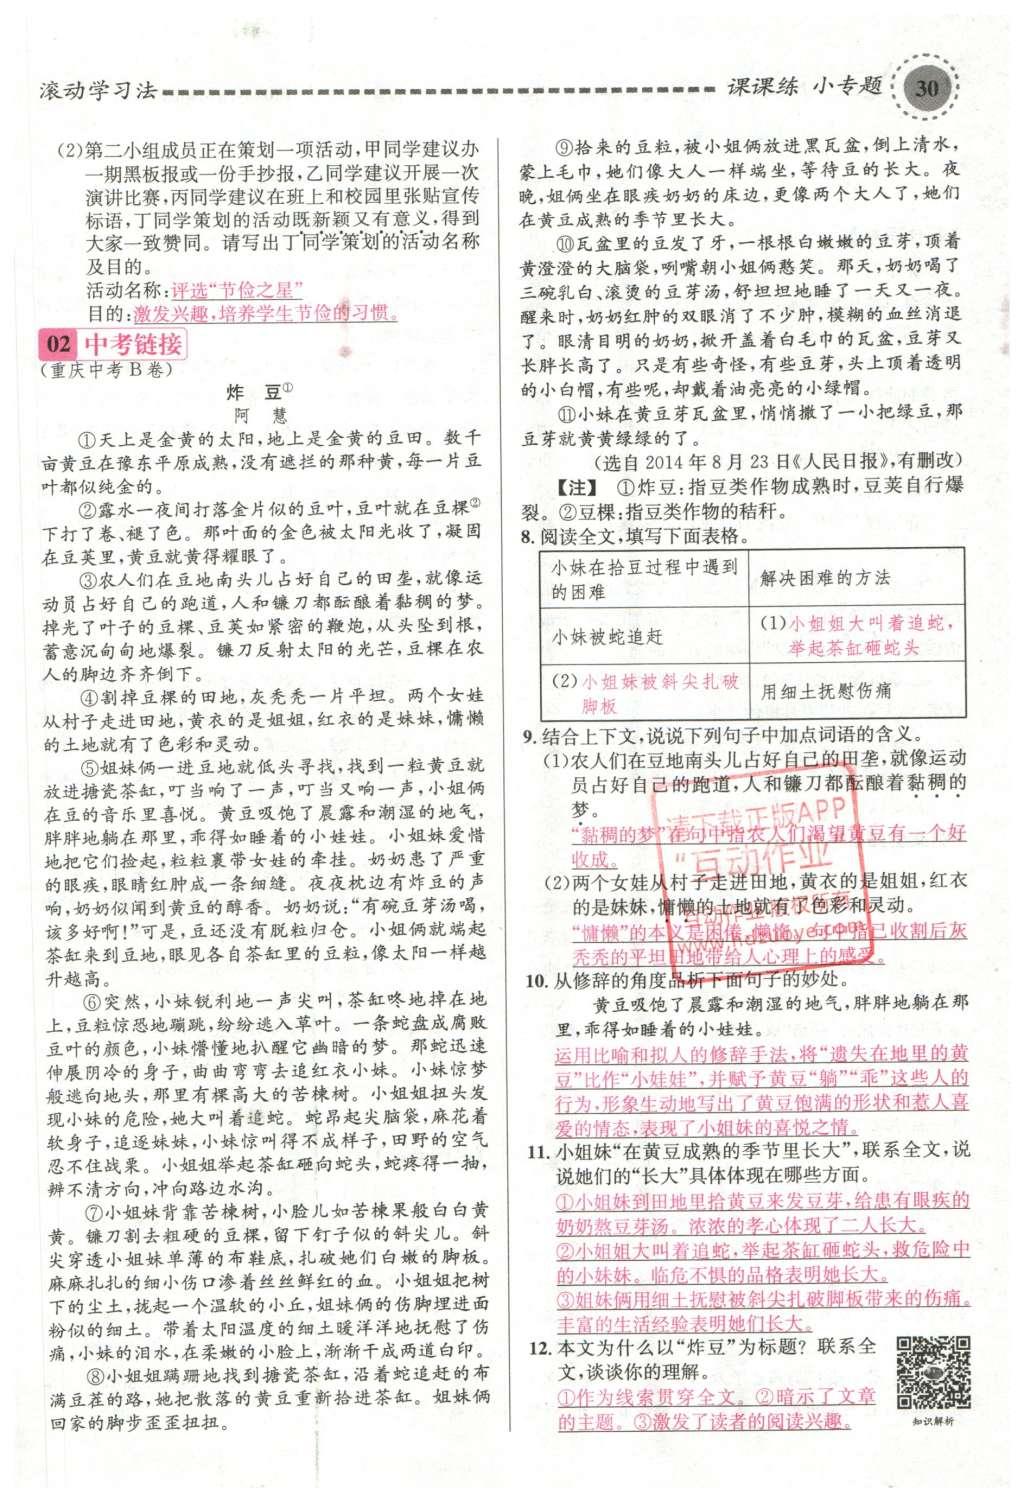 滚动学习法
课课练 小专题
30
(2)第二小组成员正在策划一项活动,甲同学建议办
一期黑板报或一份手抄报,乙同学建议开展一次
演讲比赛,丙同学建议在班上和校园里张贴宣传
标语,丁同学策划的活动既新颖又有意义,得到
大家一致赞同。请写出丁同学策划的活动名称
及目的。
活动名称:评选“节俭之星”
目的:激发兴趣,培养学生节俭的习惯。
02 中考链接
(重庆中考B卷)
炸 豆①
阿 慧
①天上是金黄的太阳,地上是金黄的豆田。数千
亩黄豆在豫东平原成熟,没有遮拦的那种黄,每一片豆
叶都似纯金的。
②露水一夜间打落金片似的豆叶,豆叶就在豆棵②
下打了卷、褪了色。那叶面的金色被太阳光收了,凝固
在豆荚里,黄豆就黄得耀眼了。
③农人们在豆地南头儿占好自己的田垄,就像运
动员占好自己的跑道,人和镰刀都酝酿着黏稠的梦。
掉光了叶子的豆棵、豆荚如紧密的鞭炮,从头坠到根,
蓄意沉向向地爆裂。镰刀反射太阳的光芒,豆棵在农
人的脚边齐齐倒下。
④割掉豆棵的田地,灰秃秃一片平坦。两个女娃
从村子走进田地,黄衣的是姐姐,红衣的是妹妹,慵懒
的土地就有了色彩和灵动。
⑤姐妹俩一进豆地就低头寻找,找到一粒黄豆就
放进搪瓷茶缸,叮当响了一声,叮当又响一声,小姐俩
在豆的音乐里喜悦。黄豆吸饱了晨露和潮湿的地气,
胖胖地躺在那里,乖得如睡着的小娃娃。小姐妹爱惜
地把它们捡起,粒粒裹带女娃的牵挂。奶奶患了严重
的眼疾,眼睛红肿成一条细缝。夜夜枕边有炸豆的声
响,奶奶似闻到黄豆的醇香。奶奶说:“有碗豆芽汤喝,
该多好啊!”可是,豆还没有脱粒归仓。小姐俩就端起
茶缸来到豆地,眼见各自茶缸里的豆粒,像太阳一样越
升越高。
⑥突然,小妹锐利地一声尖叫,茶缸咚地掉在地
上,豆粒惊恐地蹦跳,纷纷逃入草叶。一条蛇盘成腐败
豆叶的颜色,小妹懵懂地扒醒它幽暗的梦。那蛇迅速
伸展阴冷的身子,曲曲弯弯去追红衣小妹。小妹惊梦
般逃向地头,那里有棵高大的苦楝树。小姐姐扭头发
现小妹的危险,她大叫着追蛇。蛇昂起尖脑袋,麻花着
软身子,追逐妹妹,小妹惊叫得不成样子,田野的空气
忍不住战栗。小姐姐举起茶缸砸向蛇头,蛇疼得一抽,
辨不清方向,冲向路边水沟。
⑦小姐妹背靠苦楝树,小脸儿如苦楝果般白白黄
黄。镰刀割去粗硬的豆棵,留下钉子似的斜尖儿。斜
尖穿透小姐妹单薄的布鞋底,扎破她们白嫩的脚板。
麻麻扎扎的细小伤口渗着丝丝鲜红的血。小姐姐把树
下的尘土,拢起一个温软的小丘,姐妹俩的伤脚埋进面
粉似的细土。带着太阳温度的细土暖洋洋地抚慰了伤
痛,小妹的泪水,在柔嫩的小脸上,渐渐干成两道白印。
⑧小姐姐蹒跚地找到搪瓷茶缸,沿着蛇追赶的布
满豆茬的路,她把散落的黄豆重新拾进茶缸。姐妹俩
回家的脚步歪歪扭扭。
⑨拾来的豆粒,被小姐俩放进黑瓦盆,倒上清水,
蒙上毛巾,她们像大人一样端坐,等待豆的长大。夜
晚,姐俩坐在眼疾奶奶的床边,更像两个大人了,她们
在黄豆成熟的季节里长大。
⑩瓦盆里的豆发了牙,一根根白嫩嫩的豆芽,顶着
黄澄澄的大脑袋,咧嘴朝小姐俩憨笑。那天,奶奶喝了
三碗乳白、滚烫的豆芽汤,舒坦坦地睡了一天又一夜。
醒来时,奶奶红肿的双眼消了不少肿,模糊的血丝消退
了。眼清目明的奶奶,掀开盖着白毛巾的瓦盆,豆芽又
长胖长高了。只是有些奇怪,有些豆芽,头上戴了小小
的小白帽,有些呢,却戴着油亮亮的小绿帽。
⑪小妹在黄豆芽瓦盆里,悄悄撒了一小把绿豆,那
豆芽就黄黄绿绿的了。
(选自2014年8月23日《人民日报》,有删改)
【注】 ①炸豆:指豆类作物成熟时,豆荚自行爆
裂。②豆棵:指豆类作物的秸秆。
8.阅读全文,填写下面表格。
小妹在拾豆过程中遇到
的困难
解决困难的方法
小妹被蛇追赶
(1)小姐姐大叫着追蛇,
举起茶缸砸蛇头
(2)小姐妹被斜尖扎破
脚板
用细土抚慰伤痛
9.结合上下文,说说下列句子中加点词语的含义。
(1)农人们在豆地南头儿占好自己的田垄,就像运动
员占好自己的跑道,人和镰刀都酝酿着黏稠的
梦。
“黏稠的梦”在句中指农人们渴望黄豆有一个好
收成。
(2)两个女娃从村子走进田地,黄衣的是姐姐,红衣
的是妹妹,慵懒的土地就有了色彩和灵动。
“慵懒”的本义是困倦、懒惰。句中指已收割后灰
秃秃的平坦田地带给人心理上的感受。
请下载正版APP
“互动作业
互动作业 版权所有
www.hdzuoye.com
10.从修辞的角度品析下面句子的妙处。
黄豆吸饱了晨露和潮湿的地气,胖胖地躺在那
里,乖得如睡着的小娃娃。
运用比喻和拟人的修辞手法,将“遗失在地里的黄
豆”比作“小娃娃”,并赋予黄豆“躺”“乖”这些人的
行为,形象生动地写出了黄豆饱满的形状和惹人喜
爱的情态,表现了小姐妹的喜悦之情。
11.小姐妹“在黄豆成熟的季节里长大”,联系全文,说
说她们的“长大”具体体现在哪些方面。
①小姐妹到田地里拾黄豆来发豆芽,给患有眼疾的
奶奶熬豆芽汤。浓浓的孝心体现了二人长大。
②小姐姐大叫着追蛇,举起茶缸砸蛇头,救危险中
的小妹妹。临危不惧的品格表明她长大。
③姐妹俩用细土抚慰被斜尖扎破脚板带来的伤痛。
丰富的生活经验表明她们长大。
12.本文为什么以“炸豆”为标题?联系全
文,谈谈你的理解。
①作为线索贯穿全文。②暗示了文章
的主题。③激发了读者的阅读兴趣。
知识解析